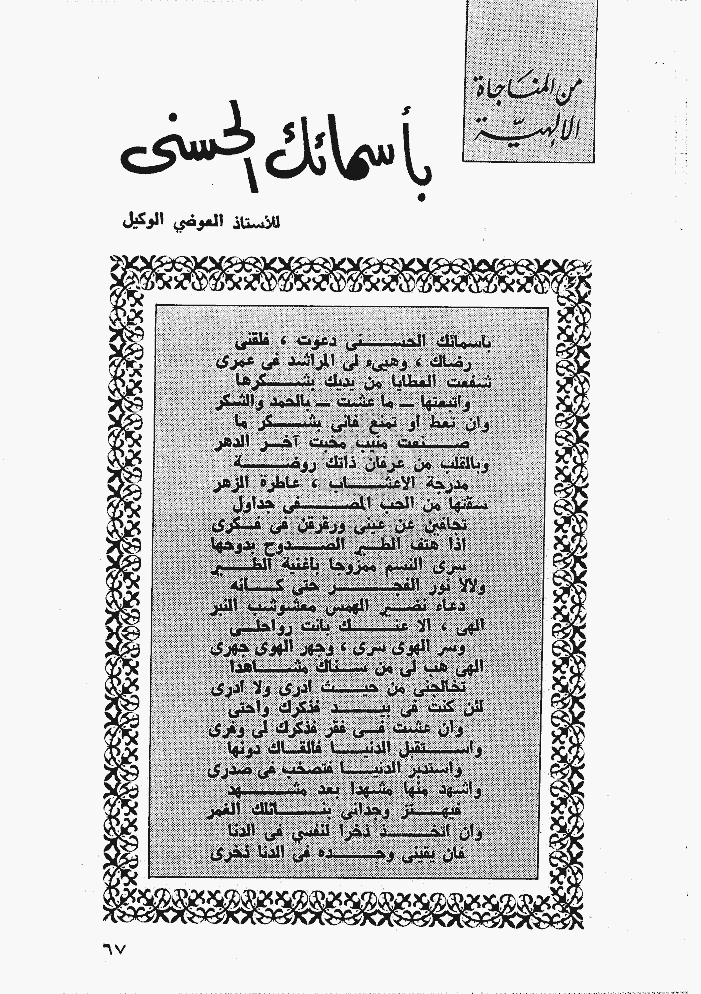 من المناجاة
الالهيّة
بأسمائك الحسنى
للأستاذ العوضي الوكيل
بأسمائك الحسنى دعوت ، فلقنى
رضاك ، وهيىء لى المراشد فى عمرى
شفعت العطايا من يديك بشكرها
واتبعتها — ما عشت — بالحمد والشكر
وان تعط او تمنع فانى بشكر ما
صنعت منيب مخبت آخر الدهر
وبالقلب من عرفان ذاتك روضة
مدرجة الاعشاب ، عاطرة الزهر
سقتها من الحب المصفى جداول
تخافين عن عينى ورقرقن فى فكرى
اذا هتف الطير الصدوح بدوحها
سرى النسم ممزوجا باغنية الطير
ولألا نور الفجر حتى كأنه
دعاء نضير الهمس معشوشب النبر
الهى ، الا عنك بانت رواحلى
وسر الهوى سرى ، وجهر الهوى جهرى
الهى هب لى من سناك مشاهدا
تخالجنى من حيث ادرى ولا ادرى
لئن كنت فى بيد فذكرك واحتى
وان عشت فى فقر فذكرك لى وفرى
واستقبل الدنيا فالقاك دونها
واستدبر الدنيا فتصخب فى صدرى
واشهد منها مشهدا بعد مشهد
فيهتز وجدانى بنائلك الغمر
وان اتخذ ذخرا لنفسى فى الدنا
فان يقينى وحده فى الدنا ذخرى
٦٧